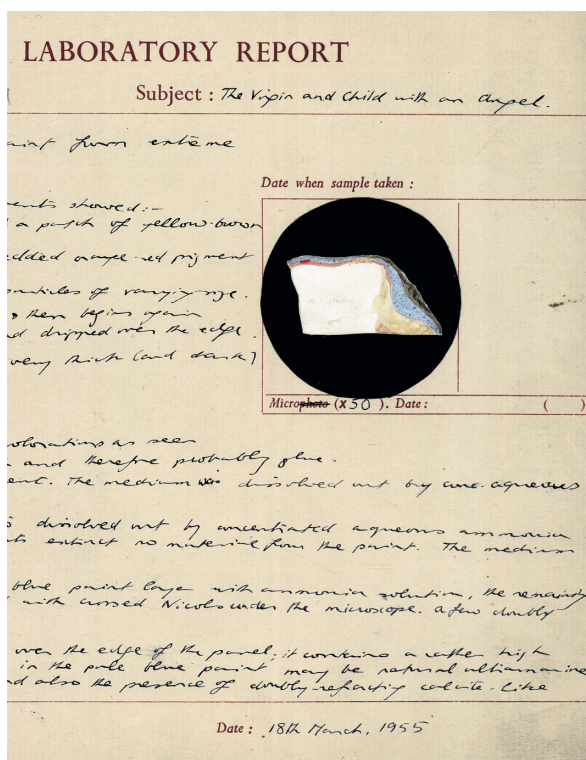 LABORATORY REPORT
Subject : The Virgin and Child with an Angel.
paint from extreme
Date when sample taken :
showed :-
a patch of yellow-brown
orange-red pigment
particles of varying size.
, then begins again
dripped over the edge.
very thick (and dark)
Microphoto (x 50 ). Date : ( )
as seen
and therefore probably glue.
The medium was dissolved out by conc. aqueous
dissolved out by concentrated aqueous ammonia
extract no material from the paint. The medium
blue paint layer with ammonia solution, the remaining
with crossed Nicols under the microscope. A few doubly
over the edge of the panel; it contains a rather high
in the pale blue paint may be natural ultramarine
also the presence of doubly-refracting calcite-like
Date : 18th March, 1955